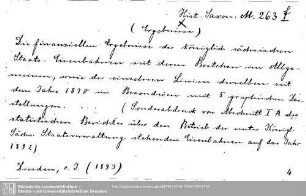 Hist. Saxon. M. 263 f
(Ergebnisse)
Die finanziellen Ergebnisse der Königlich sächsischen
Staats-Eisenbahnen mit deren Bestehen im Allge-
meinen, sowie der einzelnen Linien derselben mit
dem Jahre 1890 im Besondern mit 5 graphischen Dar-
stellungen. (Sonderabdruck von Abschnitt I A des
statistischen Berichts über den Betrieb der unter Königl.
Sächs. Staatsverwaltung stehenden Eisenbahnen auf das Jahr
1892)
Dresden, o. J. (1893)
4